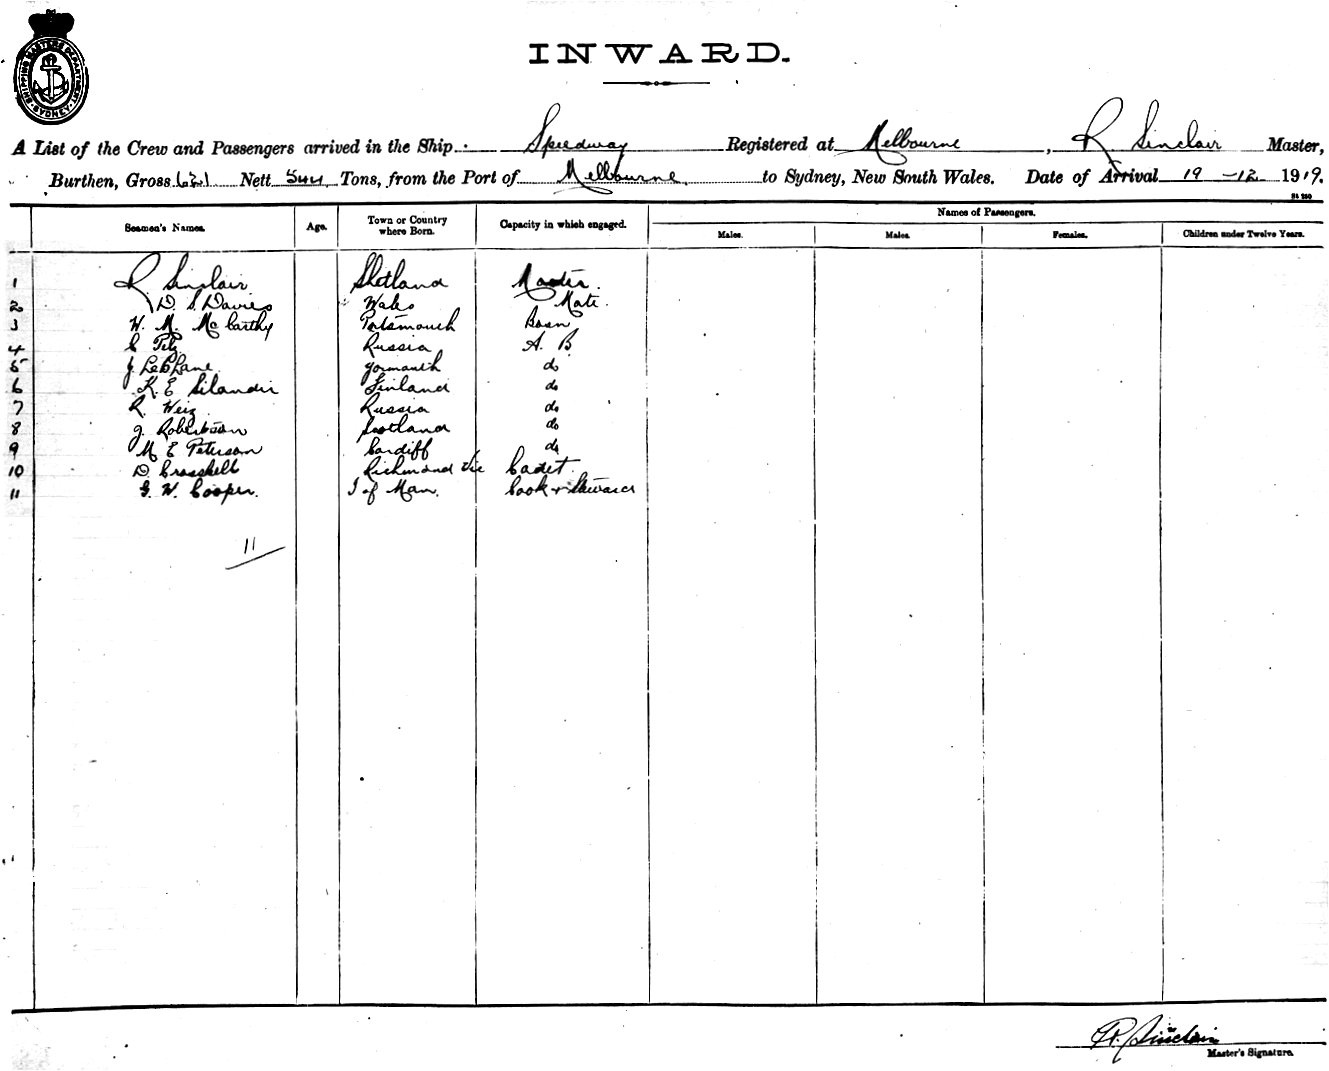 SHIPPING MASTERS DEPARTMENT SYDNEY
INWARD.
A List of the Crew and Passengers arrived in the Ship Speedway Registered at Melbourne, R Sinclair Master,
Burthen, Gross 621 Nett 544 Tons, from the Port of Melbourne to Sydney, New South Wales. Date of Arrival 19 - 12 1919.
Seamen's Names. Age. Town or Country where Born. Capacity in which engaged. Names of Passengers.
Males. Males. Females. Children under Twelve Years.
1 R. Sinclair Shetland Master.
2 D. S. Davies Wales Mate.
3 W. M. McCarthy Portsmouth Bosn
4 C Russia A. B
5 J. LeBlanc Yarmouth do
6 K. E Silander Finland do
7 R. Weiz Russia do
8 J. Robertson Scotland do
9 M E Peterson Cardiff do
10 D. Crosskell Richmond Vic Cadet.
11 G. W. Cooper. I of Man. Cook & Steward
11
R. Sinclair
Master's Signature.